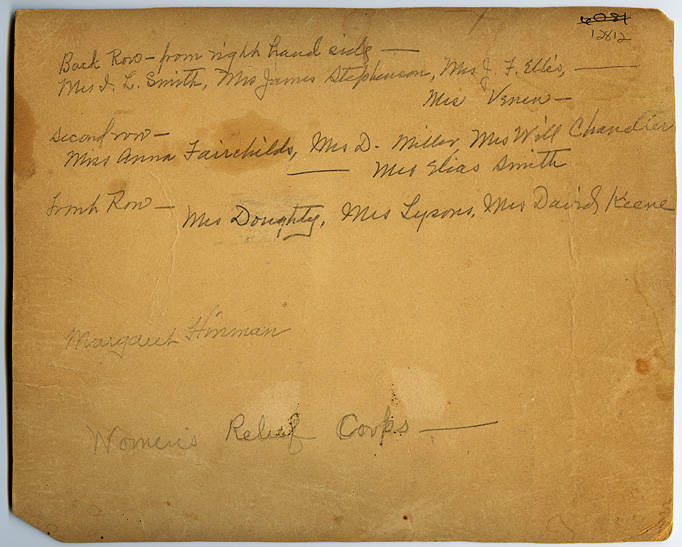 12812
Back Row - from right hand side —
Mrs I. L. Smith, Mrs James Stephenson, Mrs J. F. Ellis, —
Mrs
Second row —
Miss Anna Fairchilds, Mrs D. Miller, Mrs Will Chandler
— Mrs Elias Smith
Front Row —
Mrs Doughty, Mrs Lysons, Mrs David Keene
Margaret Hinman
Women's Relief Corps —